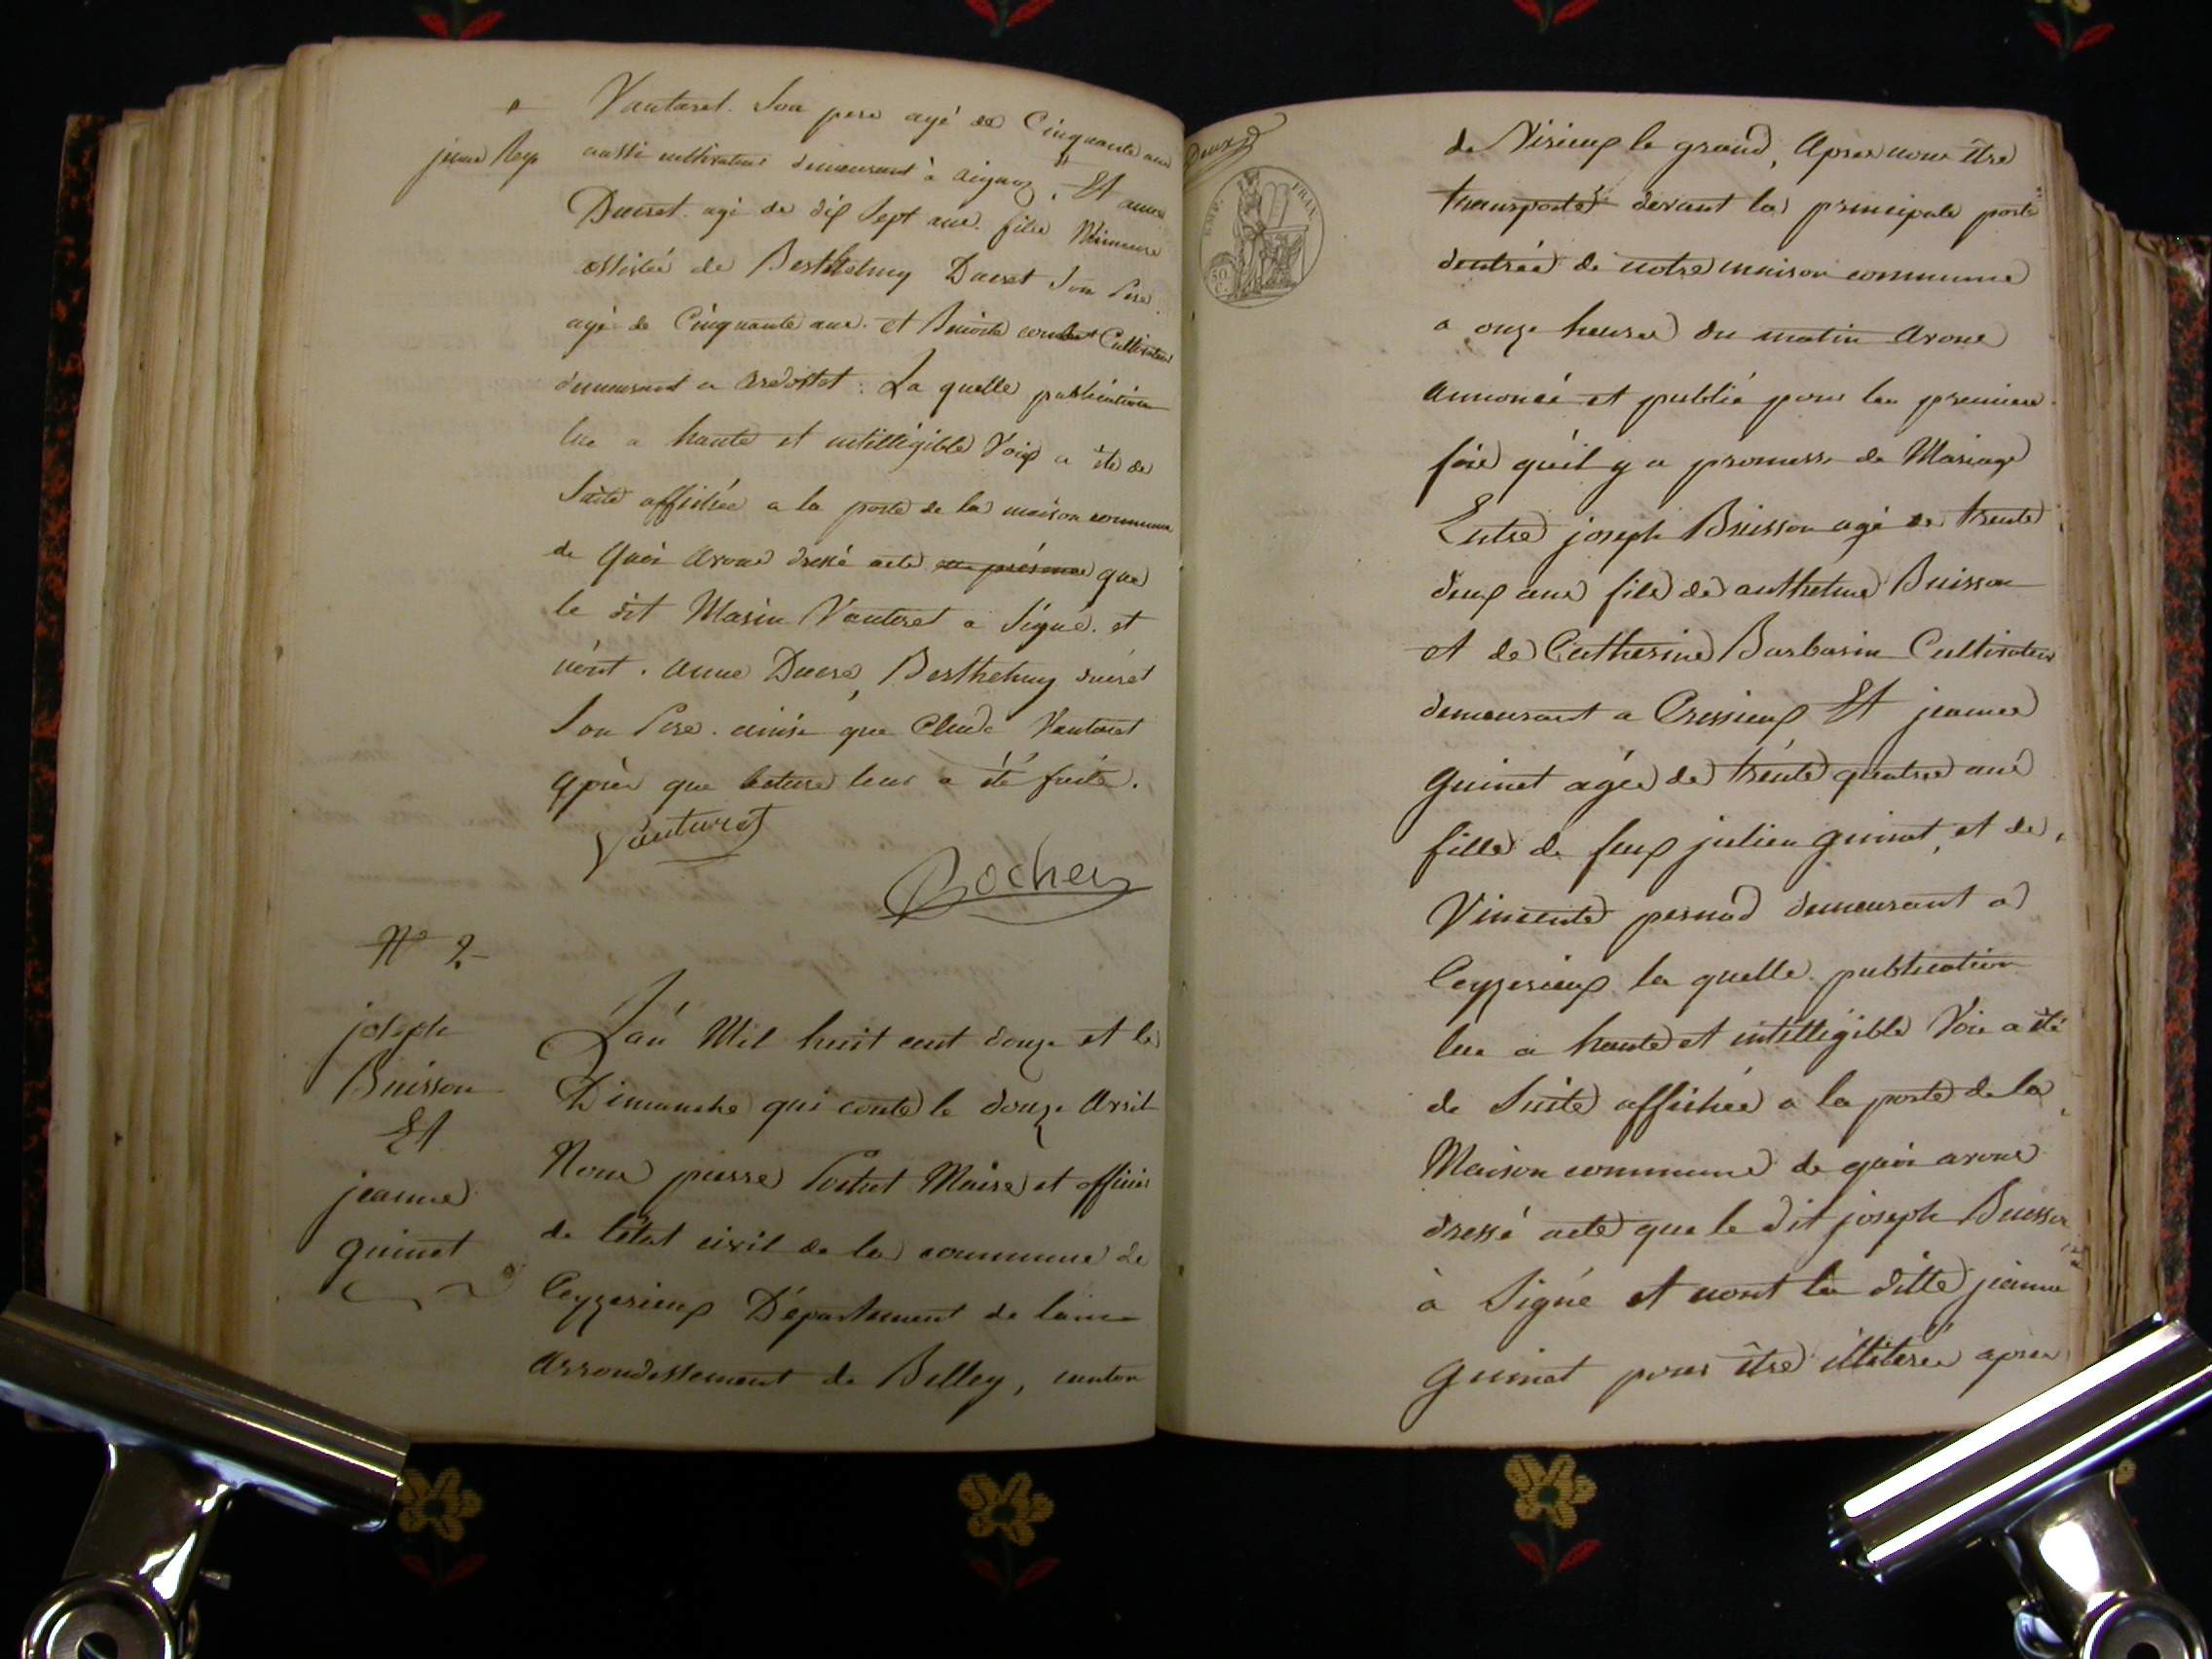 jeane Rey
Vautaret. Son pere agé de Cinquante ans
aussi cultivateur demeurant à aignoz. Et anne
Ducret. agé de dix Sept ans. fille Mineure
assistée de Berthelmy Ducret Son Pere
agé de Cinquante ans. et Benoite Cultivateur
demeurant a ardostet : La quelle publication
lue a haute et intilligible Voix a été de
Suite affichée a la porte de la maison commune
de quoi avons dressé acte en présence que
le dit Marin Vauteret a Signé. et
nont. anne Ducre, Berthelmy ducret
Son Pere. ainsi que Claude Vautaret
après que lecture leur a été faite.
Vauturet
Rocher
N° 2
joseph
Buisson
Et
jeanne
guinet
Lan Mil huit cent douze et le
Dimanche qui conte le douze Avril
Nous pierre Maire et officier
de létat civil de la commune de
Ceyzerieux Département de lain
Arrondissement de Belley, canton
Deux
EMP. FRAN.
50 C.
de Virieux le grand, Apres nous être
transporté devant la principale porte
dentrée de notre maison commune
a onze heures du matin Avons
Annoncé et publié pour la premiere
fois quéil y a promesse de Mariage
Entre joseph Buisson agé de trente
deux ans fils de anthelme Buisson
et de Catherine Barbarin Cultivateur
demeurant a Cressieux Et jeanne
guinet agée de trente quatre ans
fille de feux julien guinet, et de
Vincente pernod demeurant a
Ceyzerieux la quelle publication
lue a haute et intilligible Voie a été
de Suite affichée a la porte de la
Maison commune de quoi avons
dressé acte que le dit joseph Buisson
à Signé et nont la ditte jeanne
guinet pour être illiterée apres